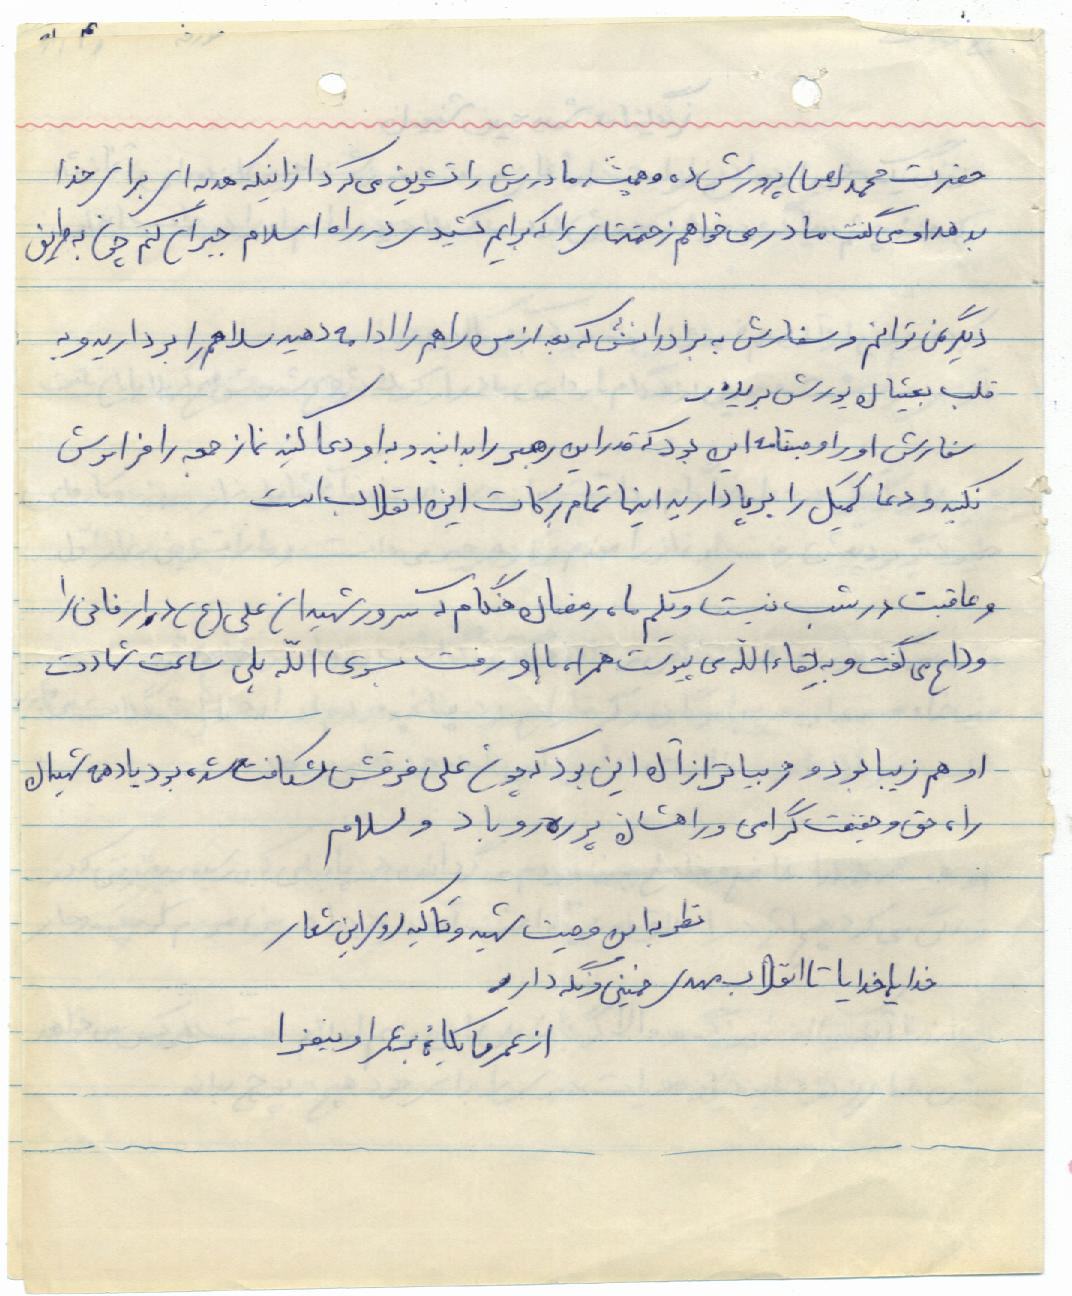 حضرت محمد (ص) پرورش داده و همیشه مادرش را تشویق می کرد از اینکه هدیه ای برای خدا
بدهد او می گفت مادر می خواهم زحمتهای را که برایم کشیدی در راه اسلام جبران کنم چون به طریق
دیگر نمی توانم و سفارش به برادرانش که بعد از من راهم را ادامه دهید سلاحم را بردارید و به
قلب بعثیان یورش برید
سفارش او را وصیتنامه این بود که قدر این رهبر را بدانید و به او دعا کنید نماز جمعه را فراموش
نکنید و دعا کمیل را برپا دارید اینها تمام برکات این انقلاب است
و عاقبت در شب بیست و یکم ماه رمضان هنگام که سرور شهیدان علی (ع) دار فانی را
وداع می گفت و به لقاءالله می پیوست همراه با او رفت بسوی الله بلی ساعت شهادت
او هم زیبا بود و زیباتر از آن این بود که چون علی فرقش شکافته شده بود یاد همه شهیدان
راه حق و حقیقت گرامی و راهشان پر رهرو باد والسلام
نظر به این وصیت شهید و تاکید روی این شعار
خدایا خدایا تا انقلاب مهدی خمینی را نگه دار
از عمر ما بکاه و بر عمر او بیفزا